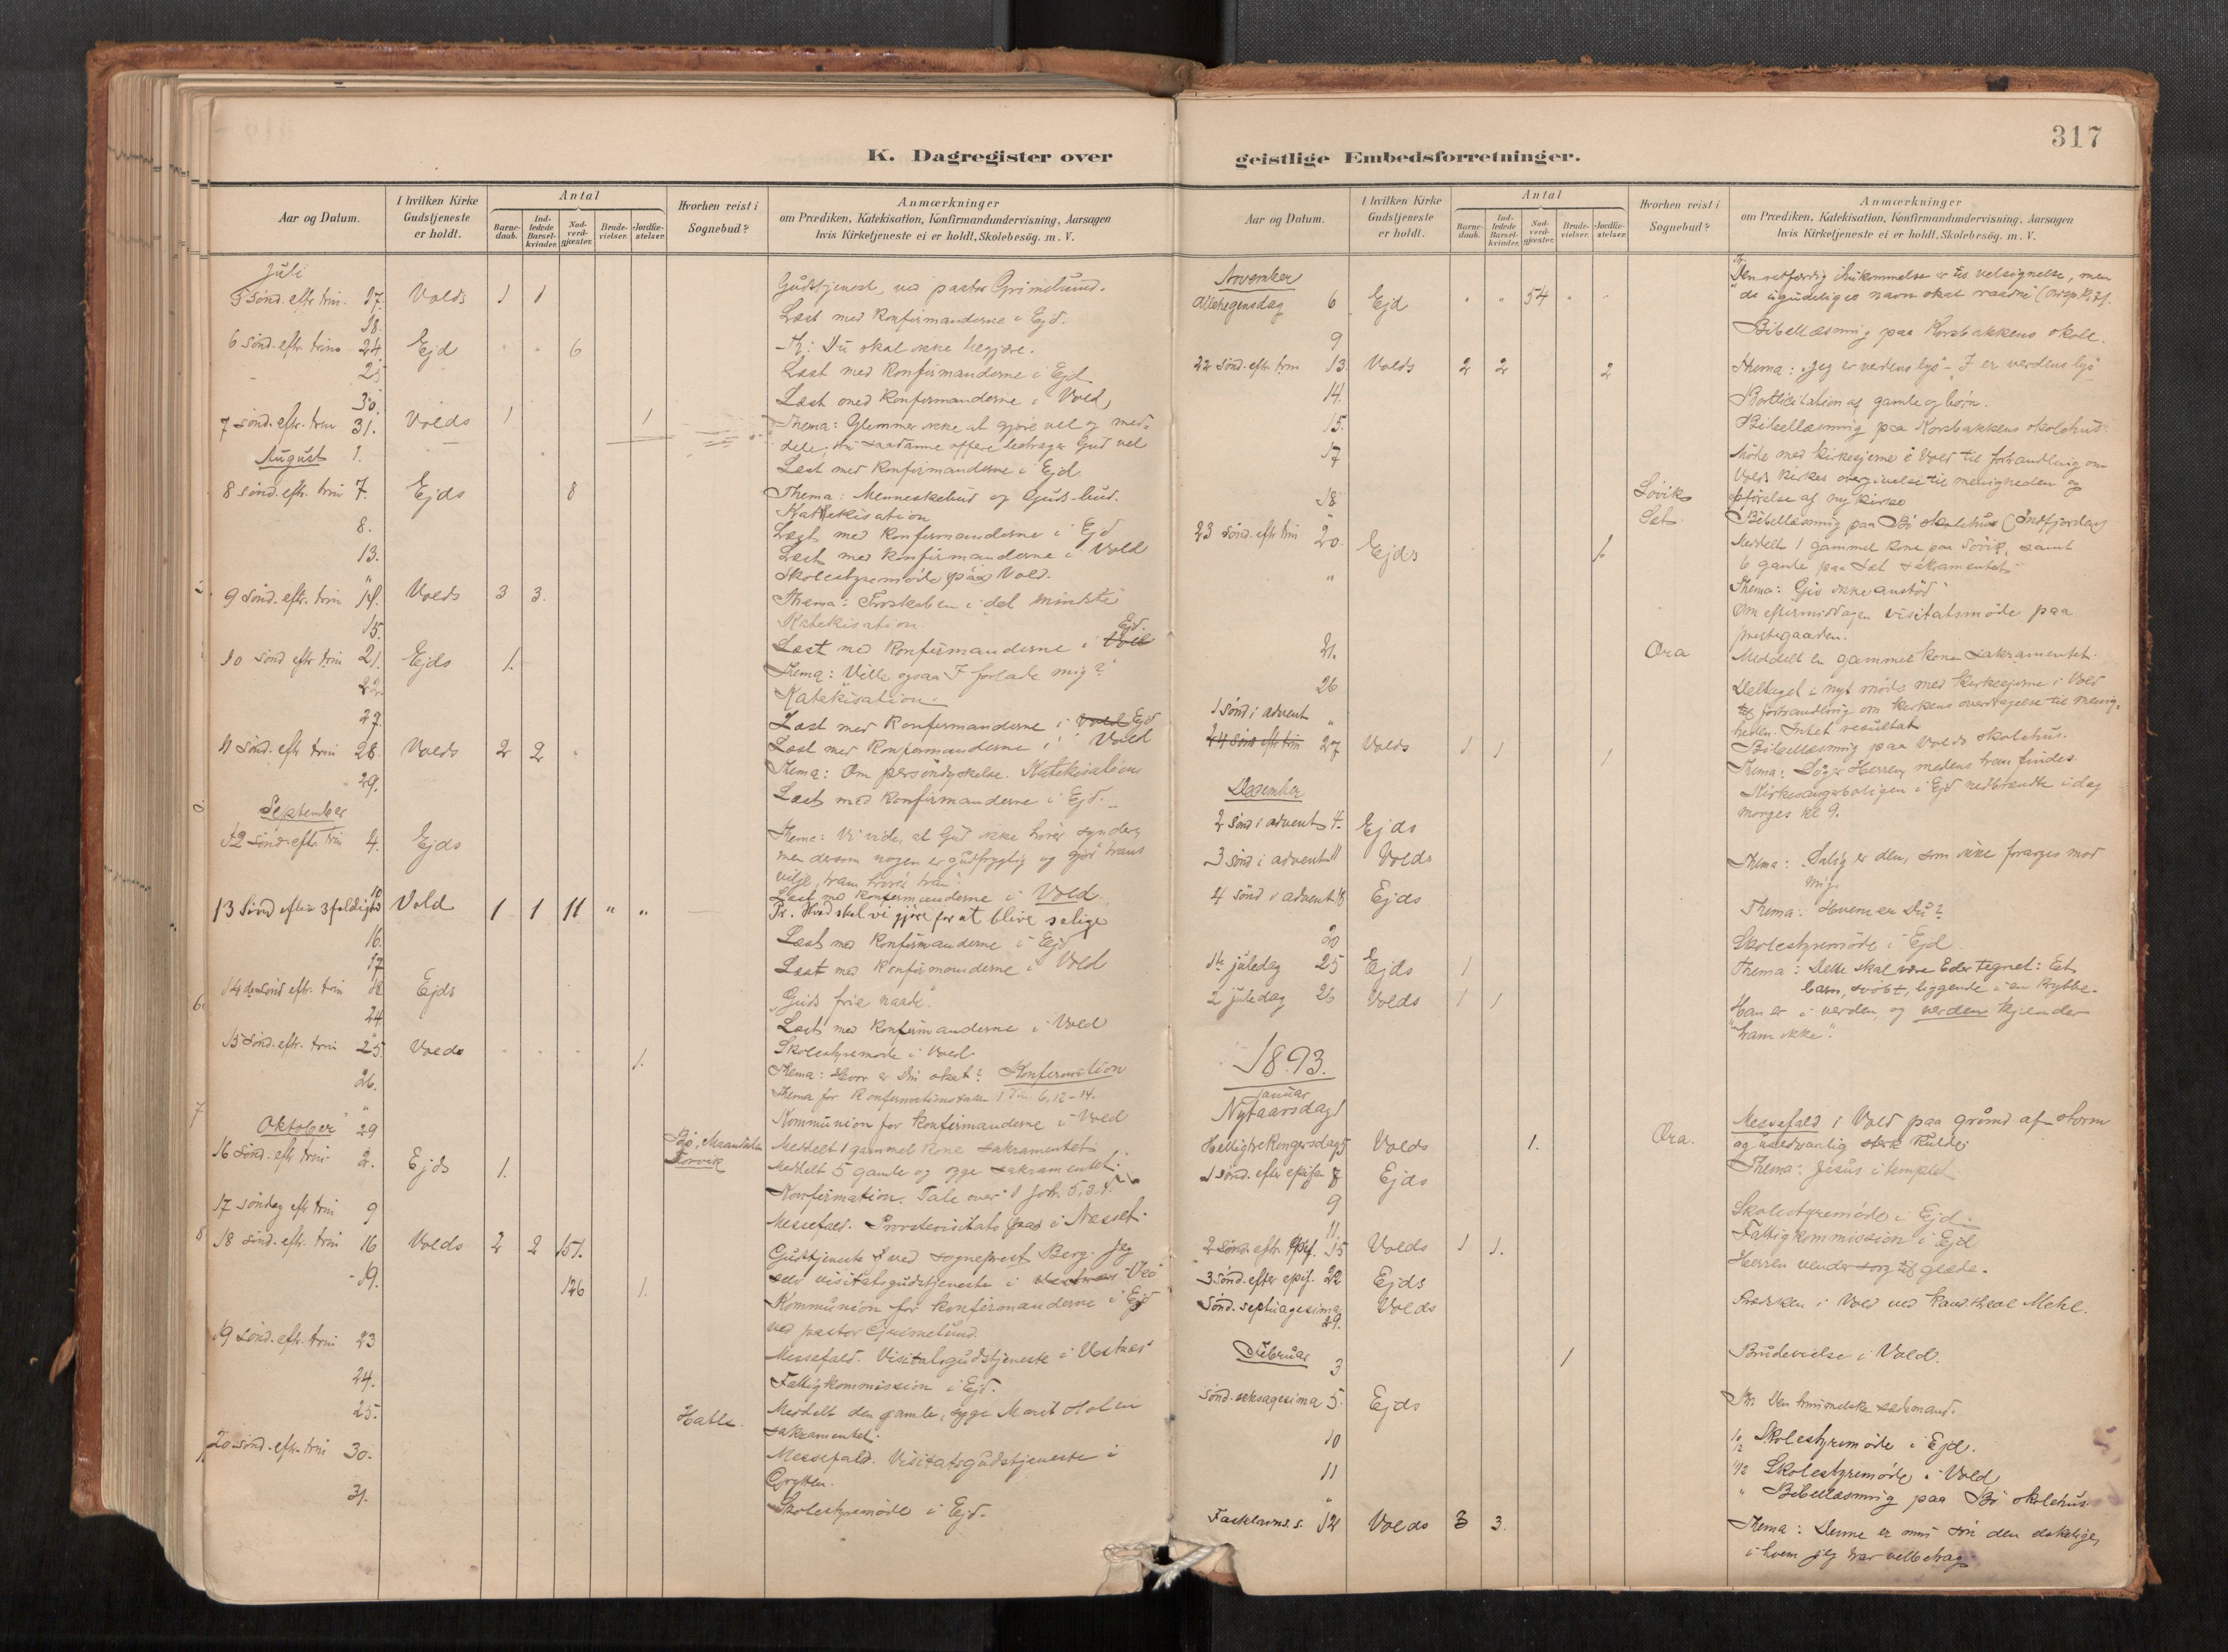 317
K. Dagregister over
geistlige Embedsforretninger.
Aar og Datum.
I hvilken Kirke Gudstjeneste er holdt.
Antal
Barnedaab.
Indledede Barselkvinder.
Nadverdgjester.
Brudevielser.
Jordfæstelser.
Hvorhen reist i Sognebud?
Anmærkninger
om Prædiken, Katekisation, Konfirmandundervisning, Aarsagen
hvis Kirketjeneste ei er holdt, Skolebesög. m. V.
Juli
5 Sönd. eftr. trin. 17. Volds 1 1 Gudstjenest, ved pastor Grimelund.
18. Læst med Konfirmanderne i Ejd.
6 sönd. eftr. trin 24 Ejd 6 Th: Du skal ikke begjære.
25 Læst med Konfirmanderne i Ejd
30. Læst med Konfirmanderne i Vold
7 sönd. eftr. trin 31. Volds 1 1 Thema: Glemmer ikke at gjøre vel og med-
dele, thi saadanne offere behager Gud vel
August 1. Læst med Konfirmanderne i Ejd.
8 sönd. eftr. trin 7. Ejds 8 Thema: Menneskebud og Guds bud.
Katekisation
8. Læst med Konfirmanderne i Ejd
13. Læst med Konfirmanderne i Vold
" Skolestyremöde paa Vold.
9 sönd. eftr. trin 14. Volds 3 3. Thema: Troskaben i det mindste
Katekisation.
15. Læst med Konfirmanderne i Vold Ejd.
10 sönd eftr trin 21. Ejds 1. Thema: Ville ogsaa I forlade mig?
Katekisation.
22 Læst med Konfirmanderne i Vold Ejd
27. Læst med Konfirmanderne i Vold
11 sönd. eftr trin 28. Volds 2 2 Thema: Om Katekisation
29. Læst med Konfirmanderne i Ejd.
September
12 Sönd. eftr. trin 4. Ejds Thema: Vi vide, at Gud ikke hører syndere,
men dersom nogen er gudfrygtig og gjør hans
vilje, ham hører han".
10 Læst med Konfirmanderne i Vold.
13 Sönd efter 3foldigh Vold 1 1 11 " " Pr. Hvad skal vi gjöre for at blive salige
16. Læst med Konfirmanderne i Ejd
17 Læst med Konfirmanderne i Vold
14 den sönd eftr. trin 18 Ejds "Guds frie naade".
24 Læst med Konfirmanderne i Vold
" Skolestyremöde i Vold.
15 sönd. eftr. trin 25. Volds 1. Thema: Hvor er Du Konfirmation
Thema for Konfirmationstalen 1 Tim 6, 12-14.
26. Kommunion for Konfirmanderne i Vold
" Bö, Meddelt 1 gammel Kone sakramentet
Oktober 29 Torvik Meddelt 5 gamle og syge sakramentet.
16 sönd. eftr trin 2. Ejds 1. Konfirmation. Tale over 1 Joh. 5, 3.4.
17 söndag eftr trin 9 Messefald. Provstevisitats i Nesset.
18 sönd. eftr. trin 16 Volds 2 2 157. Gudstjeneste ved sogneprest Berg. Jeg
selv visitatsgudstjeneste i Veö
19. 126 1. Kommunion for konfirmanderne i Ejd
ved pastor Grimelund.
19 sönd. eftr. trin 23 Messefald. Visitatsgudstjeneste i Vestnes
24. Fattigkommission i Ejd.
25. Hatle. Meddelt den gamle, syge Marit Holen
sakramentet.
20 sönd. eftr. trin 30. Messefald. Visitatsgudstjeneste i
Grytten.
31. Skolestyremöde i Ejd.
Aar og Datum.
I hvilken Kirke Gudstjeneste er holdt.
Antal
Barnedaab.
Indledede Barselkvinder.
Nadverdgjester.
Brudevielser.
Jordfæstelser.
Hvorhen reist i Sognebud?
Anmærkninger
om Prædiken, Katekisation, Konfirmandundervisning, Aarsagen
hvis Kirketjeneste ei er holdt, Skolebesög. m. V.
November
Allehegensdag 6 Ejd " " 54 " " Den retfærdig ihukommelse er til velsignelse, men
de ugudeliges navn skal raadne
9 Bibellæsning paa Korsbakkens skole.
22 sönd. eftr. trin 13. Volds 2 2 2 Thema: Jeg er verdens lys - I er verdens lys
14. Bortlicitation af gamle og børn.
15. Bibellæsning paa Korsbakkens skolehus.
17 Möde med kirkeejerne i Vold til forhandling om
Volds kirkes overgivelse til menigheden og
opförelse af ny kirke
18 Lövik Bibellæsning paa Bö skolehus (Indfjorden)
" Sæt Meddelt 1 gammel kone paa Lövik, samt
6 gamle paa Sæt sakramentet
23 sönd. eftr trin 20. Ejds 1. Thema: Giv ikke anstöd
" Om eftermiddagen visitatsmöde paa
prestegaarden.
21. Øra Meddelt en gammel kone sakramentet.
26 Deltaget i nyt möde med Kirkeejerne i Vold
til forhandling om kirkens overdragelse til menig-
heden. Intet resultat
1 sönd i advent " Bibellæsning paa Volds skolehus.
24 sönd eftr trin 27 Volds 1 1 1 Thema: Søger Herren, medens han findes.
Kirkesangerboligen i Ejd nedbrændte idag
morges kl 9.
Desember
2 sönd i advent 4. Ejds
3 sönd i advent 11 Volds Thema: Salig er den, som ikke forarges mod
mig.
4 sönd i advent 18 Ejds Thema: Hvem er Du?
20 Skolestyremöde i Ejd.
1te juledag 25 Ejds 1 Thema: Dette skal være Eder tegnet: Et
barn, svöbt, liggende i en Krybbe.
2 juledag 26 Volds 1 1 "Han er i verden, og verden kjender
ham ikke".
1893.
Januar
Nytaarsdag 1 Messefald i Vold paa grund af storm
og usedvanlig sterk kulde.
Helligtrekongersdag 5 Volds 1. Øra. Thema: Jesus i templet
1 sönd. efter epifa 8 Ejds
9 Skolestyremöde i Ejd.
11. Fattigkommission i Ejd
2 sönd. eftr. Epif. 15 Volds 1 1. Herren vender sorg til glæde.
3 sönd. efter epif. 22 Ejds
Sönd. septuagesima 29. Volds Prædiken i Vold ved kand. theol Mehl.
Februar
3 1 Brudevielse i Vold.
Sönd. seksagesima 5. Ejds Th: Den himmelske sædemand.
10 10/2 Skolestyremöde i Ejd.
11 11/2 Skolestyremöde i Vold
" " Bibellæsning paa Bö skolehus
Fastelavns. s. 12 Volds 3 3. Thema: Denne er min sön den elskelige,
i hvem jeg har velbehag